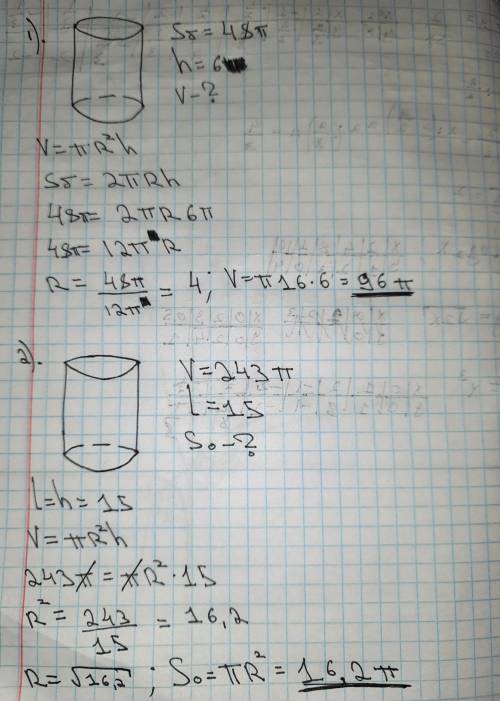 1).
Sδ = 48π
h = 6
V - ?
V = πR²h
Sδ = 2πRh
48π = 2πR6π
48π = 12πR
R = 48π/12π = 4; V = π16·6 = 96π
2).
V = 243π
l = 15
So - ?
l = h = 15
V = πR²h
243π = πR²·15
R² = 243/15 = 16,2
R = √16,2; So = πR² = 16,2π